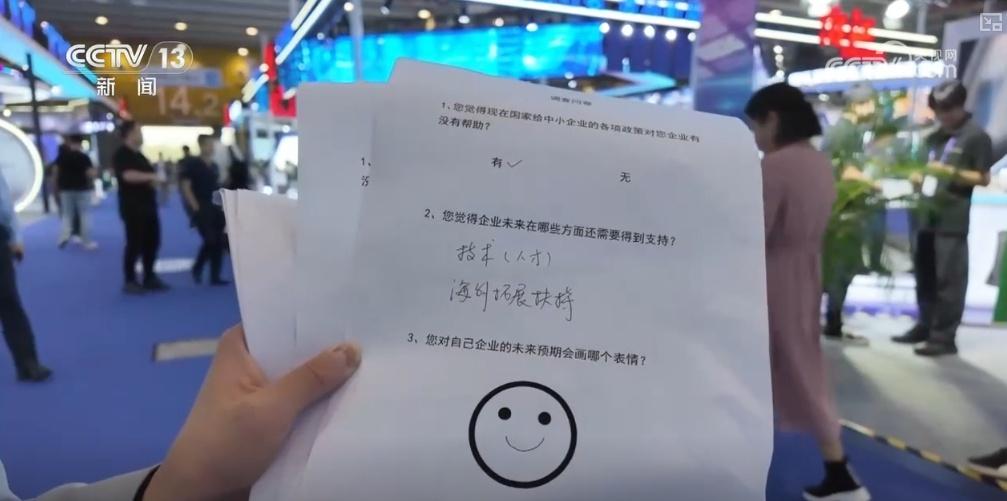 CCTV 13
新闻
14.2
央视网
调查问卷
1、您觉得现在国家给中小企业的各项政策对您企业有
没有帮助?
有✓
无
1、
2、您觉得企业未来在哪些方面还需要得到支持?
技术(人才)
海外拓展扶持
3、您对自己企业的未来预期会画哪个表情?